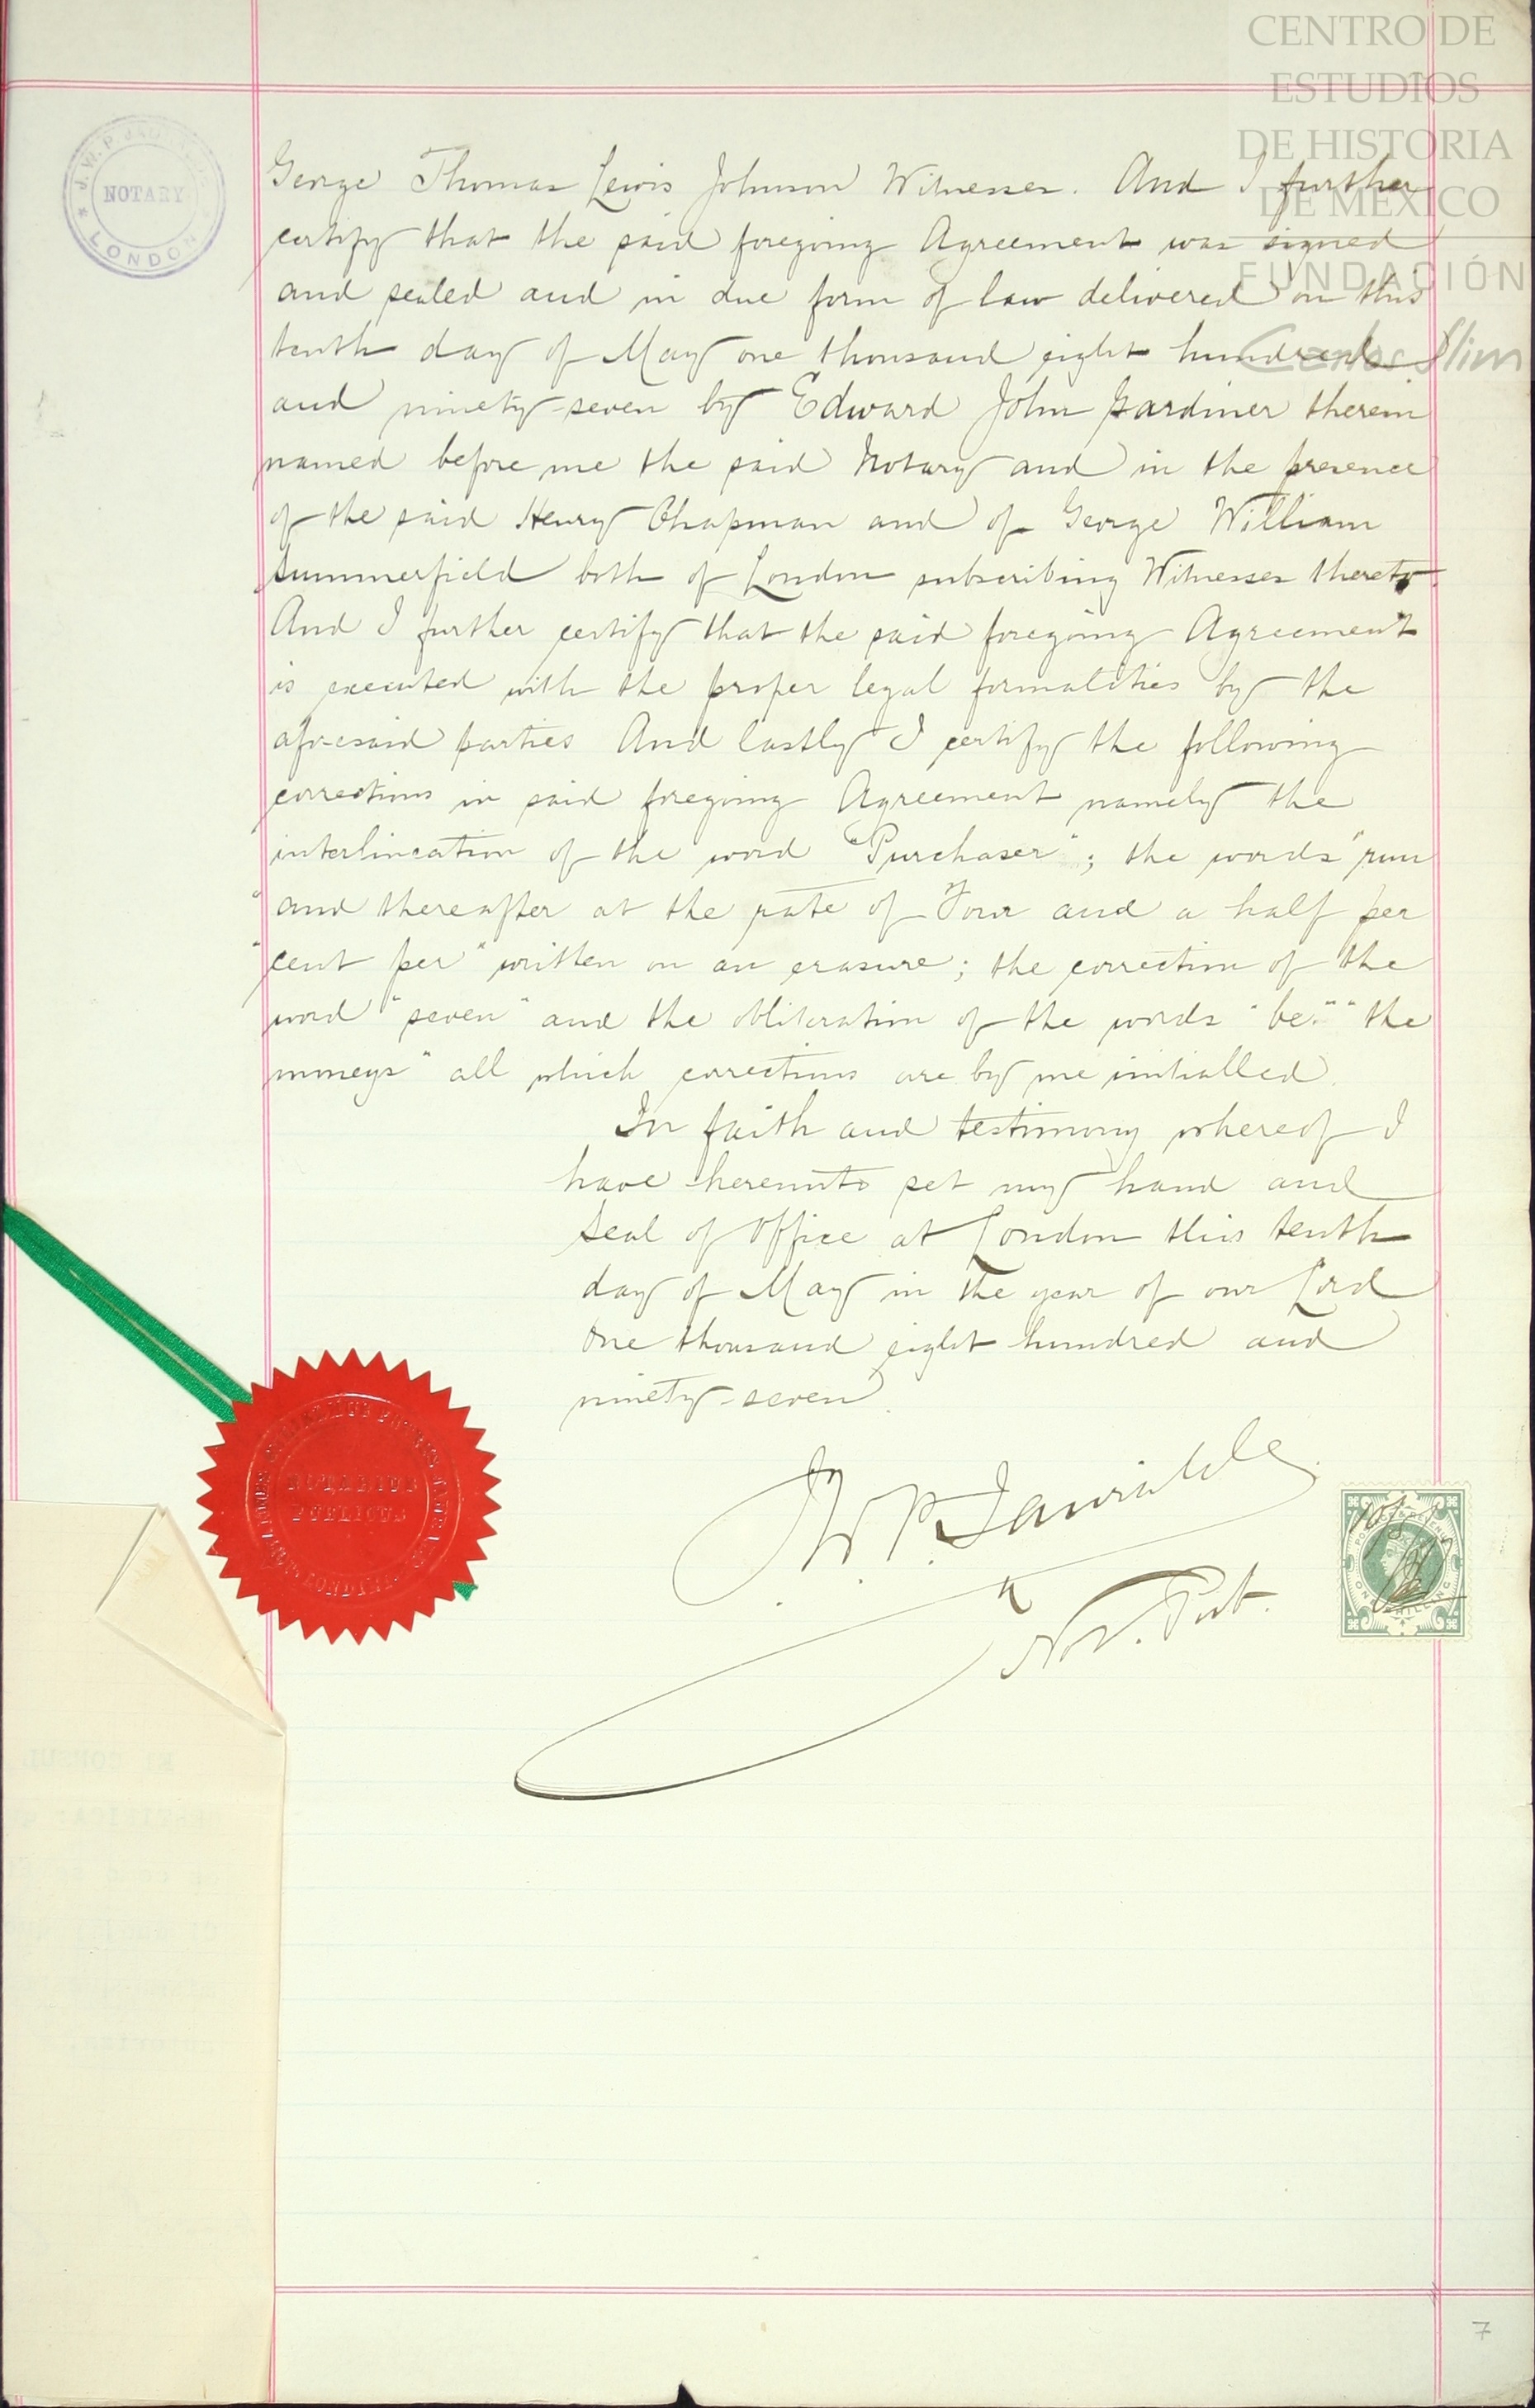 CENTRO DE
ESTUDIOS
DE HISTORIA
DE MEXICO
FUNDACIÓN
Carlos Slim
J. W. P.
NOTARY
LONDON
George Thomas Lewis Johnson Witnesses. And I further
certify that the said foregoing Agreement was signed
and sealed and in due form of law delivered on this
tenth day of May one thousand eight hundred
and ninety-seven by Edward John Gardiner therein
named before me the said Notary and in the presence
of the said Henry Chapman and of George William
Summerfield both of London subscribing Witnesses thereto.
And I further certify that the said foregoing Agreement
is executed with the proper legal formalities by the
aforesaid parties And lastly I certify the following
corrections in said foregoing Agreement namely the
interlineation of the word "Purchaser"; the words "run
"and thereafter at the rate of Four and a half per
"cent per" written on an erasure; the correction of the
word "seven" and the obliteration of the words "be" "the
moneys" all which corrections are by me initialled.
In faith and testimony whereof I
have hereunto set my hand and
Seal of Office at London this tenth
day of May in the year of our Lord
One thousand eight hundred and
ninety-seven.
NOTARIUS
PUBLICUS
Not. Pub.
ONE SHILLING
EL CONSUL
7